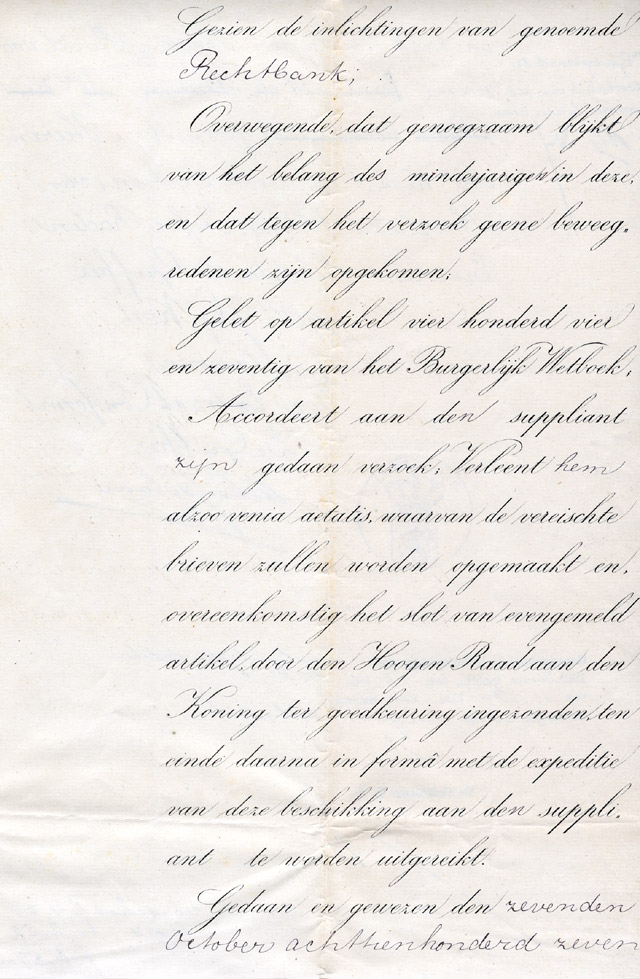 Gezien de inlichtingen van genoemde
Rechtbank;
Overwegende, dat genoegzaam blijkt
van het belang des minderjarigen in deze,
en dat tegen het verzoek geene beweeg-
redenen zijn opgekomen;
Gelet op artikel vier honderd vier
en zeventig van het Burgerlijk Wetboek;
Accordeert aan den suppliant
zijn gedaan verzoek; Verleent hem
alzoo venia aetatis, waarvan de vereischte
brieven zullen worden opgemaakt en,
overeenkomstig het slot van evengemeld
artikel, door den Hoogen Raad aan den
Koning ter goedkeuring ingezonden, ten
einde daarna in formâ met de expeditie
van deze beschikking aan den suppli-
ant te worden uitgereikt.
Gedaan en gewezen den zevenden
October achttienhonderd zeven